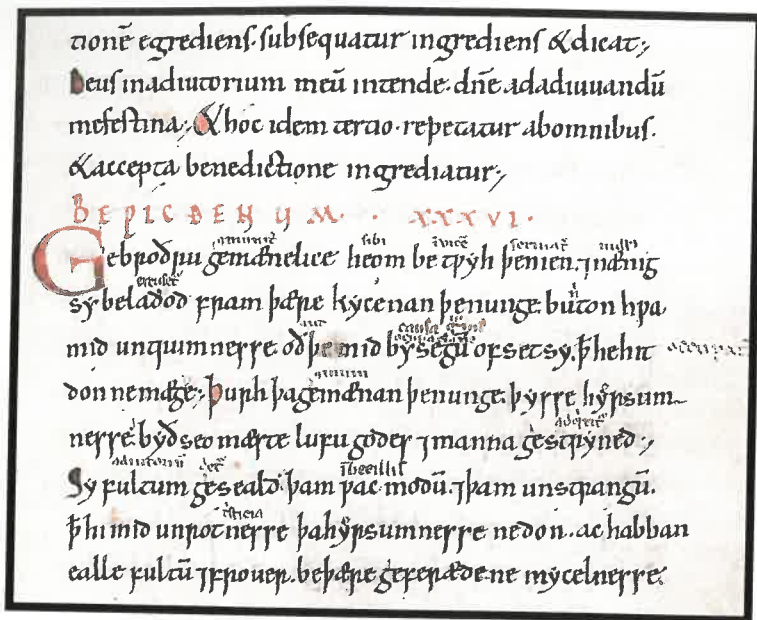 tionē egrediens. subsequatur ingrediens & dicat;
Deus in adiutorium meū intende. dn̄e ad adiuuandū
me festina; & hoc idem tertio. repetatur ab omnibus.
& accepta benedictione ingrediatur;
BE ÞIC ÐENUM. . XXXVI.
Gebroðru gemænelice heom betƿyh þenien. ⁊ nænig
sibi inuicē
sy beladod fram þære kycenan þenunge. buton hƿa
mid untrumnesse oððe mid bysegū ofset sy. ꝥ he hit
don ne mæge; Þurh þa gemænan þenunge. þysse hyrsum
nesse. byð seo mæste lufu godes ⁊ manna gestryned;
adiutoriū
Sy fultum geseald þam ƿacmodū. ⁊ þam unstrangū.
tristicia
ꝥ hi mid unrotnesse þa hyrsumnesse ne don. ac habban
ealle fultū ⁊ frouer. be þære geferæde. ne mycelnesse.